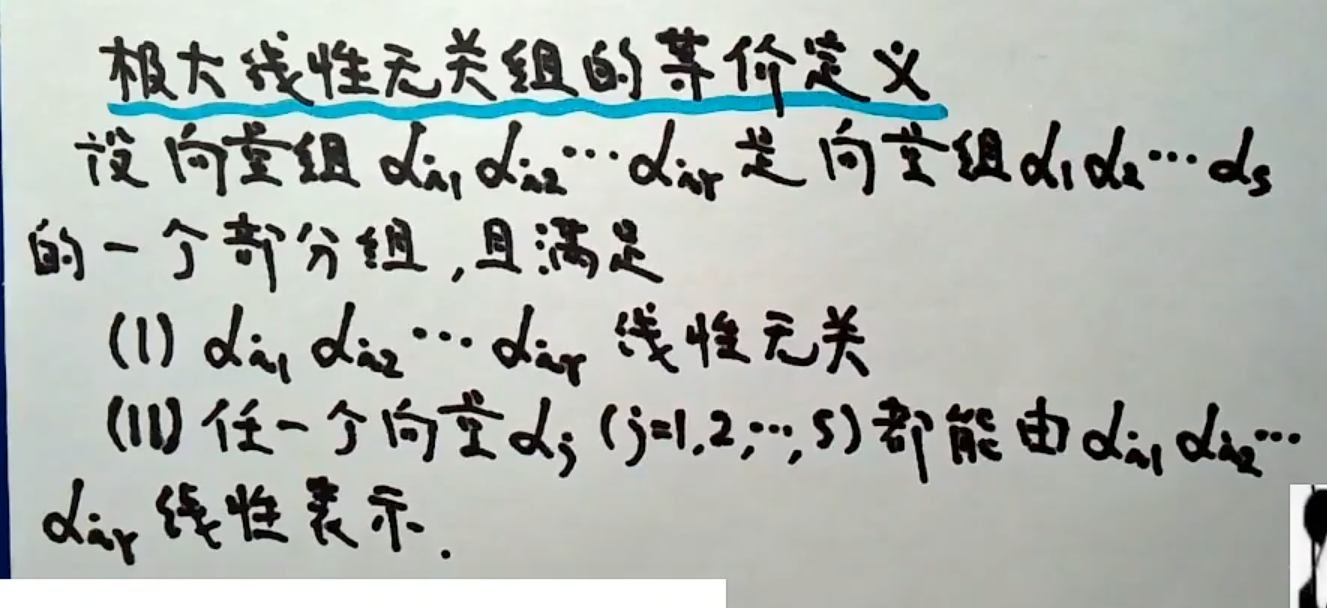 极大线性无关组的等价定义
设向量组 αi₁ αi₂ ⋯ αiᵣ 是向量组 α₁ α₂ ⋯ αₛ
的一个部分组,且满足
(I) αi₁ αi₂ ⋯ αiᵣ 线性无关
(II) 任一个向量 αⱼ (j=1,2,⋯,s) 都能由 αi₁ αi₂ ⋯
αiᵣ 线性表示.